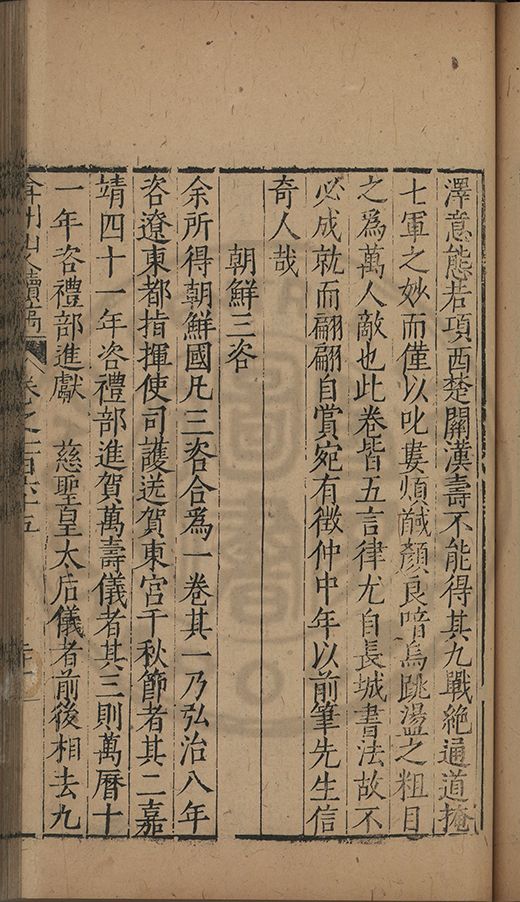 澤意態若項西楚關漢壽不能得其九戰絶通道掩
七軍之妙而僅以叱婁煩馘顏良喑嗚跳盪之粗目
之爲萬人敵也此卷皆五言律尤自長城書法故不
必成就而翩翩自賞宛有徵仲中年以前筆先生信
奇人哉
朝鮮三咨
余所得朝鮮國凡三咨合爲一卷其一乃弘治八年
咨遼東都指揮使司護送賀東宮千秋節者其二嘉
靖四十一年咨禮部進賀萬壽儀者其三則萬曆十
一年咨禮部進獻 慈聖皇太后儀者前後相去九
弇州山人續稿 卷之一百六十五